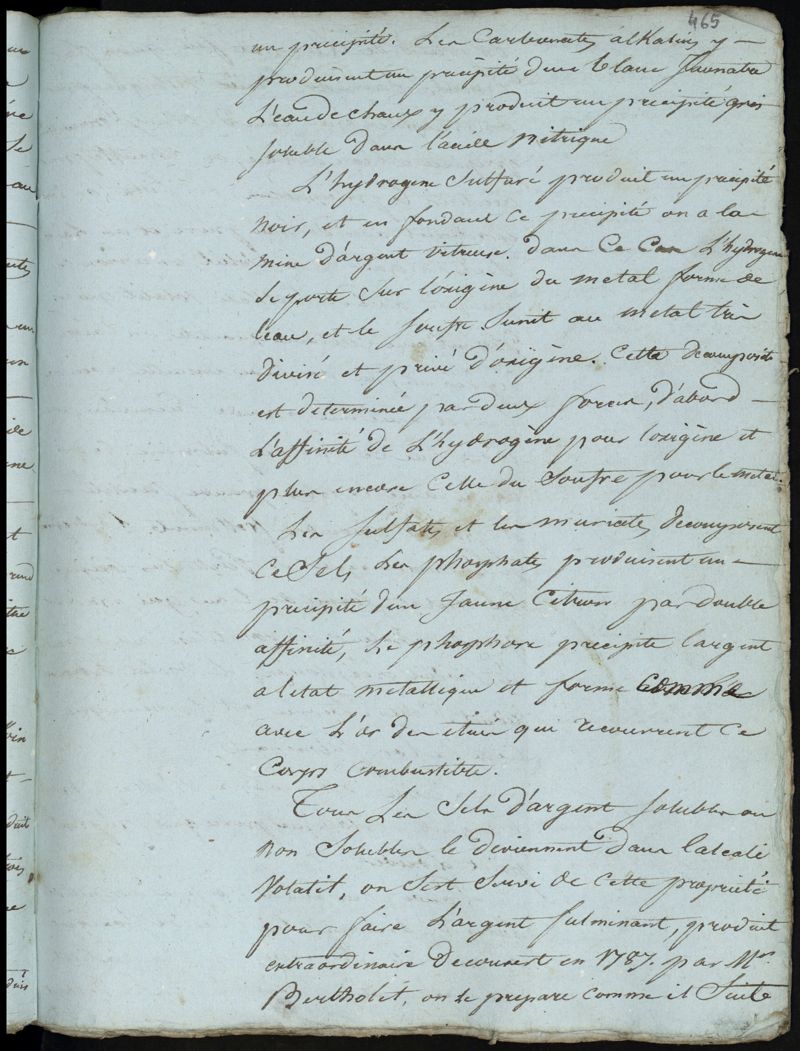 465
un precipité. Les Carbonates alkalins y —
produisent un précipité d'un blanc Jaunatre
L'eau de chaux y produit un precipité gris
soluble dans l'acide nitrique
L'hydrogene Sulfuré produit un precipité
noir, et en fondant ce precipité on a la
mine d'argent vitreuse. dans ce cas L'hydrogene
se porte sur l'oxigène du metal forme de
l'eau, et le soufre s'unit au metal très
divisé et privé d'oxigène. Cette decomposit
est determinée par deux forces, d'abord —
L'affinité de L'hydrogène pour l'oxigène et
plus encore celle du Soufre pour le metal.
Les Sulfates et les muriates decomposent
ce Sel, Les phosphates produisent un —
précipité d'un Jaune Citron par double
affinité, Le phosphore precipite l'argent
a l'etat metallique et forme comme
avec L'or des etuis qui recouvrent ce
Corps combustible.
Tous Les Sels d'argent solubles ou
non solubles le deviennent dans l'alcali
Volatil, on s'est servi de cette propriété
pour faire L'argent fulminant, produit
extraordinaire decouvert en 1787. par Mr.
Bertholet, on le prepare comme il suit